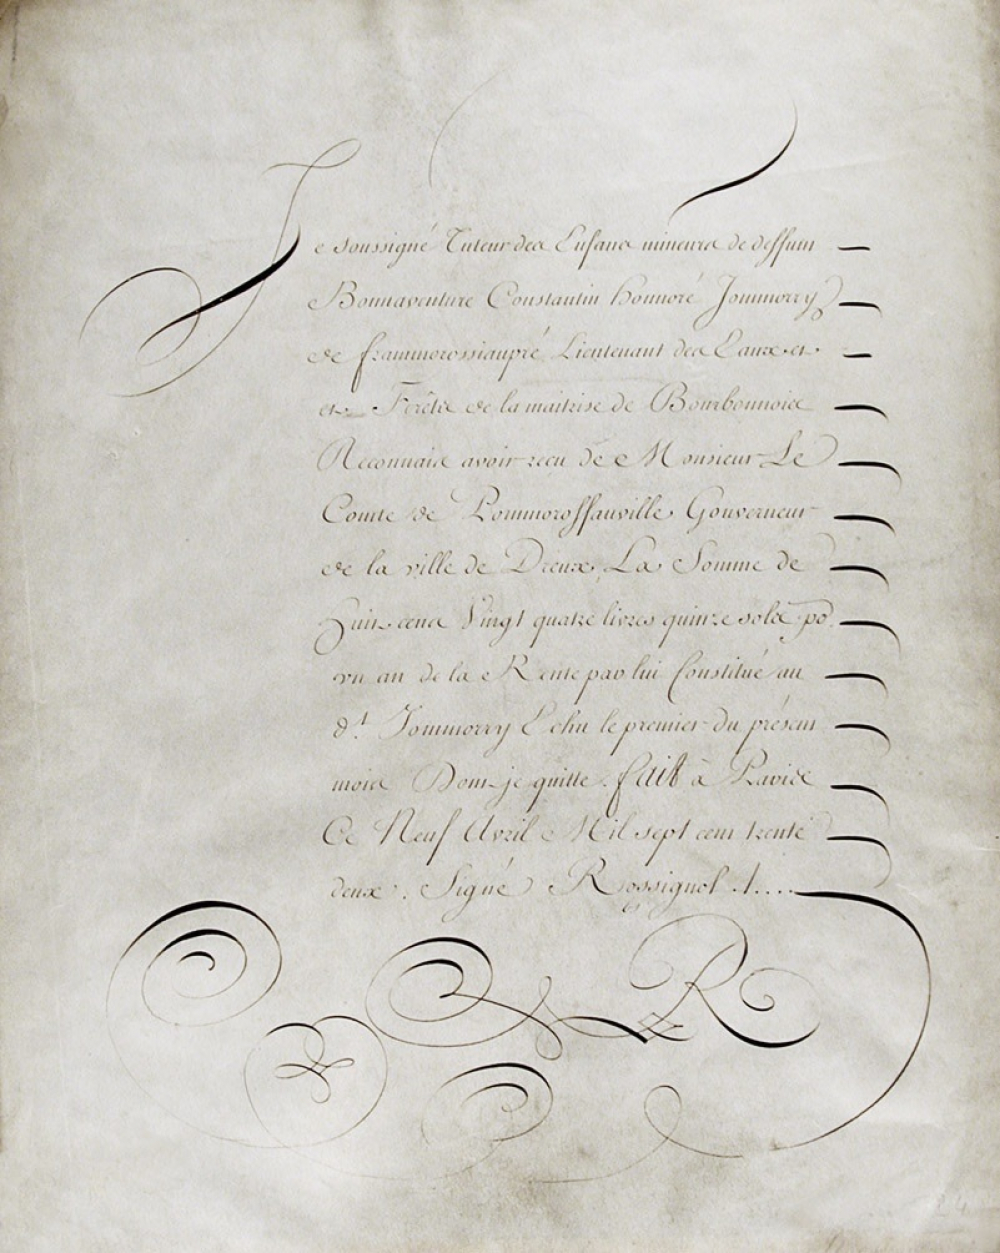 Je soussigné Tuteur des Enfans mineurs de deffunt
Bonnaventure Constantin honnoré Jommorry
de frammorossianpré Lieutenant des Eaux et
et Forêts de la maitrise de Bourbonnois
Reconnais avoir recu de Monsieur Le
Comte de Pommoroffauville Gouverneur
de la ville de Dreux, La Somme de
Huit cens Vingt quatre livres quinze sols po.
un an de la Rente par lui Constitué au
d.t Jommorry Echu le premier du présent
mois Dont je quitte . fait à Paris
Ce Neuf Avril Mil sept cent trente
deux . Signé Rossignol ....
R